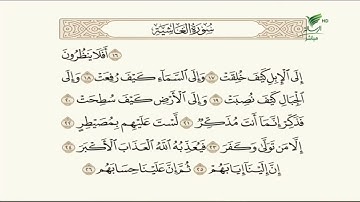 سُورَةُ الْغَاشِيَةِ
HD
مباشر
١٦ أَفَلَا يَنظُرُونَ
إِلَى الْإِبِلِ كَيْفَ خُلِقَتْ ١٧ وَإِلَى السَّمَاءِ كَيْفَ رُفِعَتْ ١٨ وَإِلَى
الْجِبَالِ كَيْفَ نُصِبَتْ ١٩ وَإِلَى الْأَرْضِ كَيْفَ سُطِحَتْ ٢٠
فَذَكِّرْ إِنَّمَا أَنتَ مُذَكِّرٌ ٢١ لَّسْتَ عَلَيْهِم بِمُصَيْطِرٍ ٢٢
إِلَّا مَن تَوَلَّىٰ وَكَفَرَ ٢٣ فَيُعَذِّبُهُ اللَّهُ الْعَذَابَ الْأَكْبَرَ ٢٤
إِنَّ إِلَيْنَا إِيَابَهُمْ ٢٥ ثُمَّ إِنَّ عَلَيْنَا حِسَابَهُم ٢٦